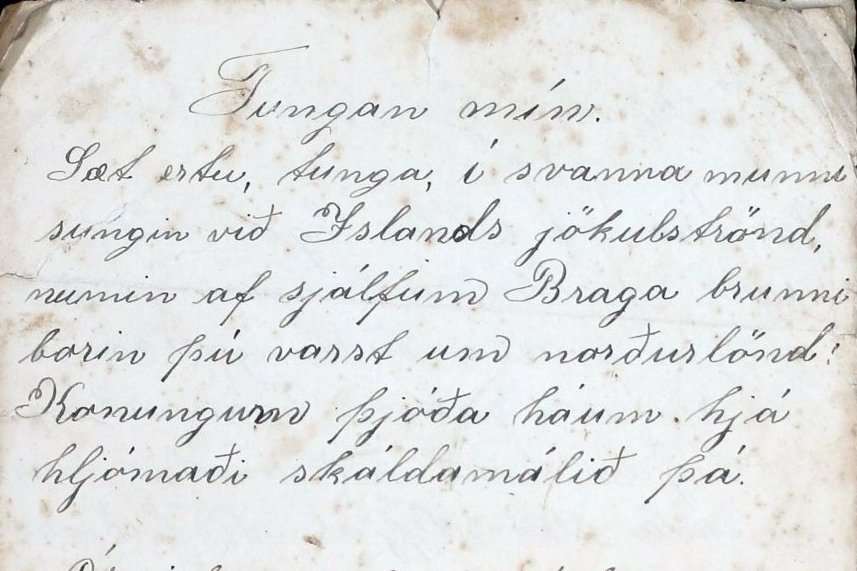 Tungan mín.
Sæt ertu, tunga, í svanna munni
sungin við Íslands jökulströnd,
numin af sjálfum Braga brunni
borin þú varst um norðurlönd;
Konungum þjóða háum hjá
hljómaði skáldamálið þá.